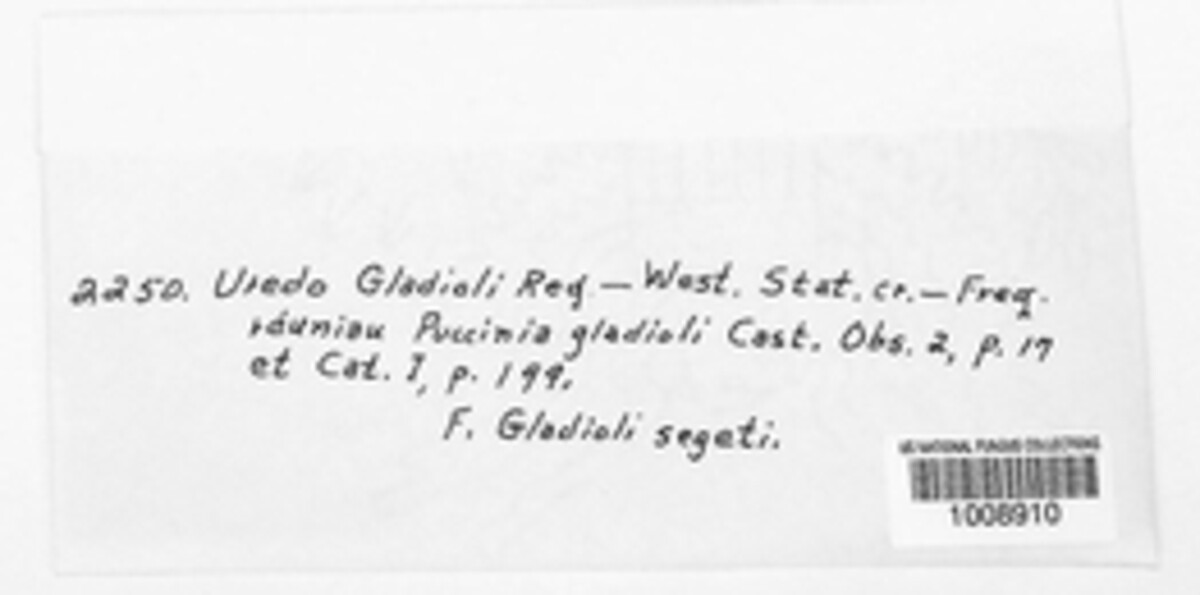 2250. Uredo Gladioli Req. — West. Stat. cr. — Freq.
et Cat. I, p. 199.
Puccinia gladioli Cast. Obs. 2, p. 17
F. Gladioli segeti.
US NATIONAL FUNGUS COLLECTIONS
1008910